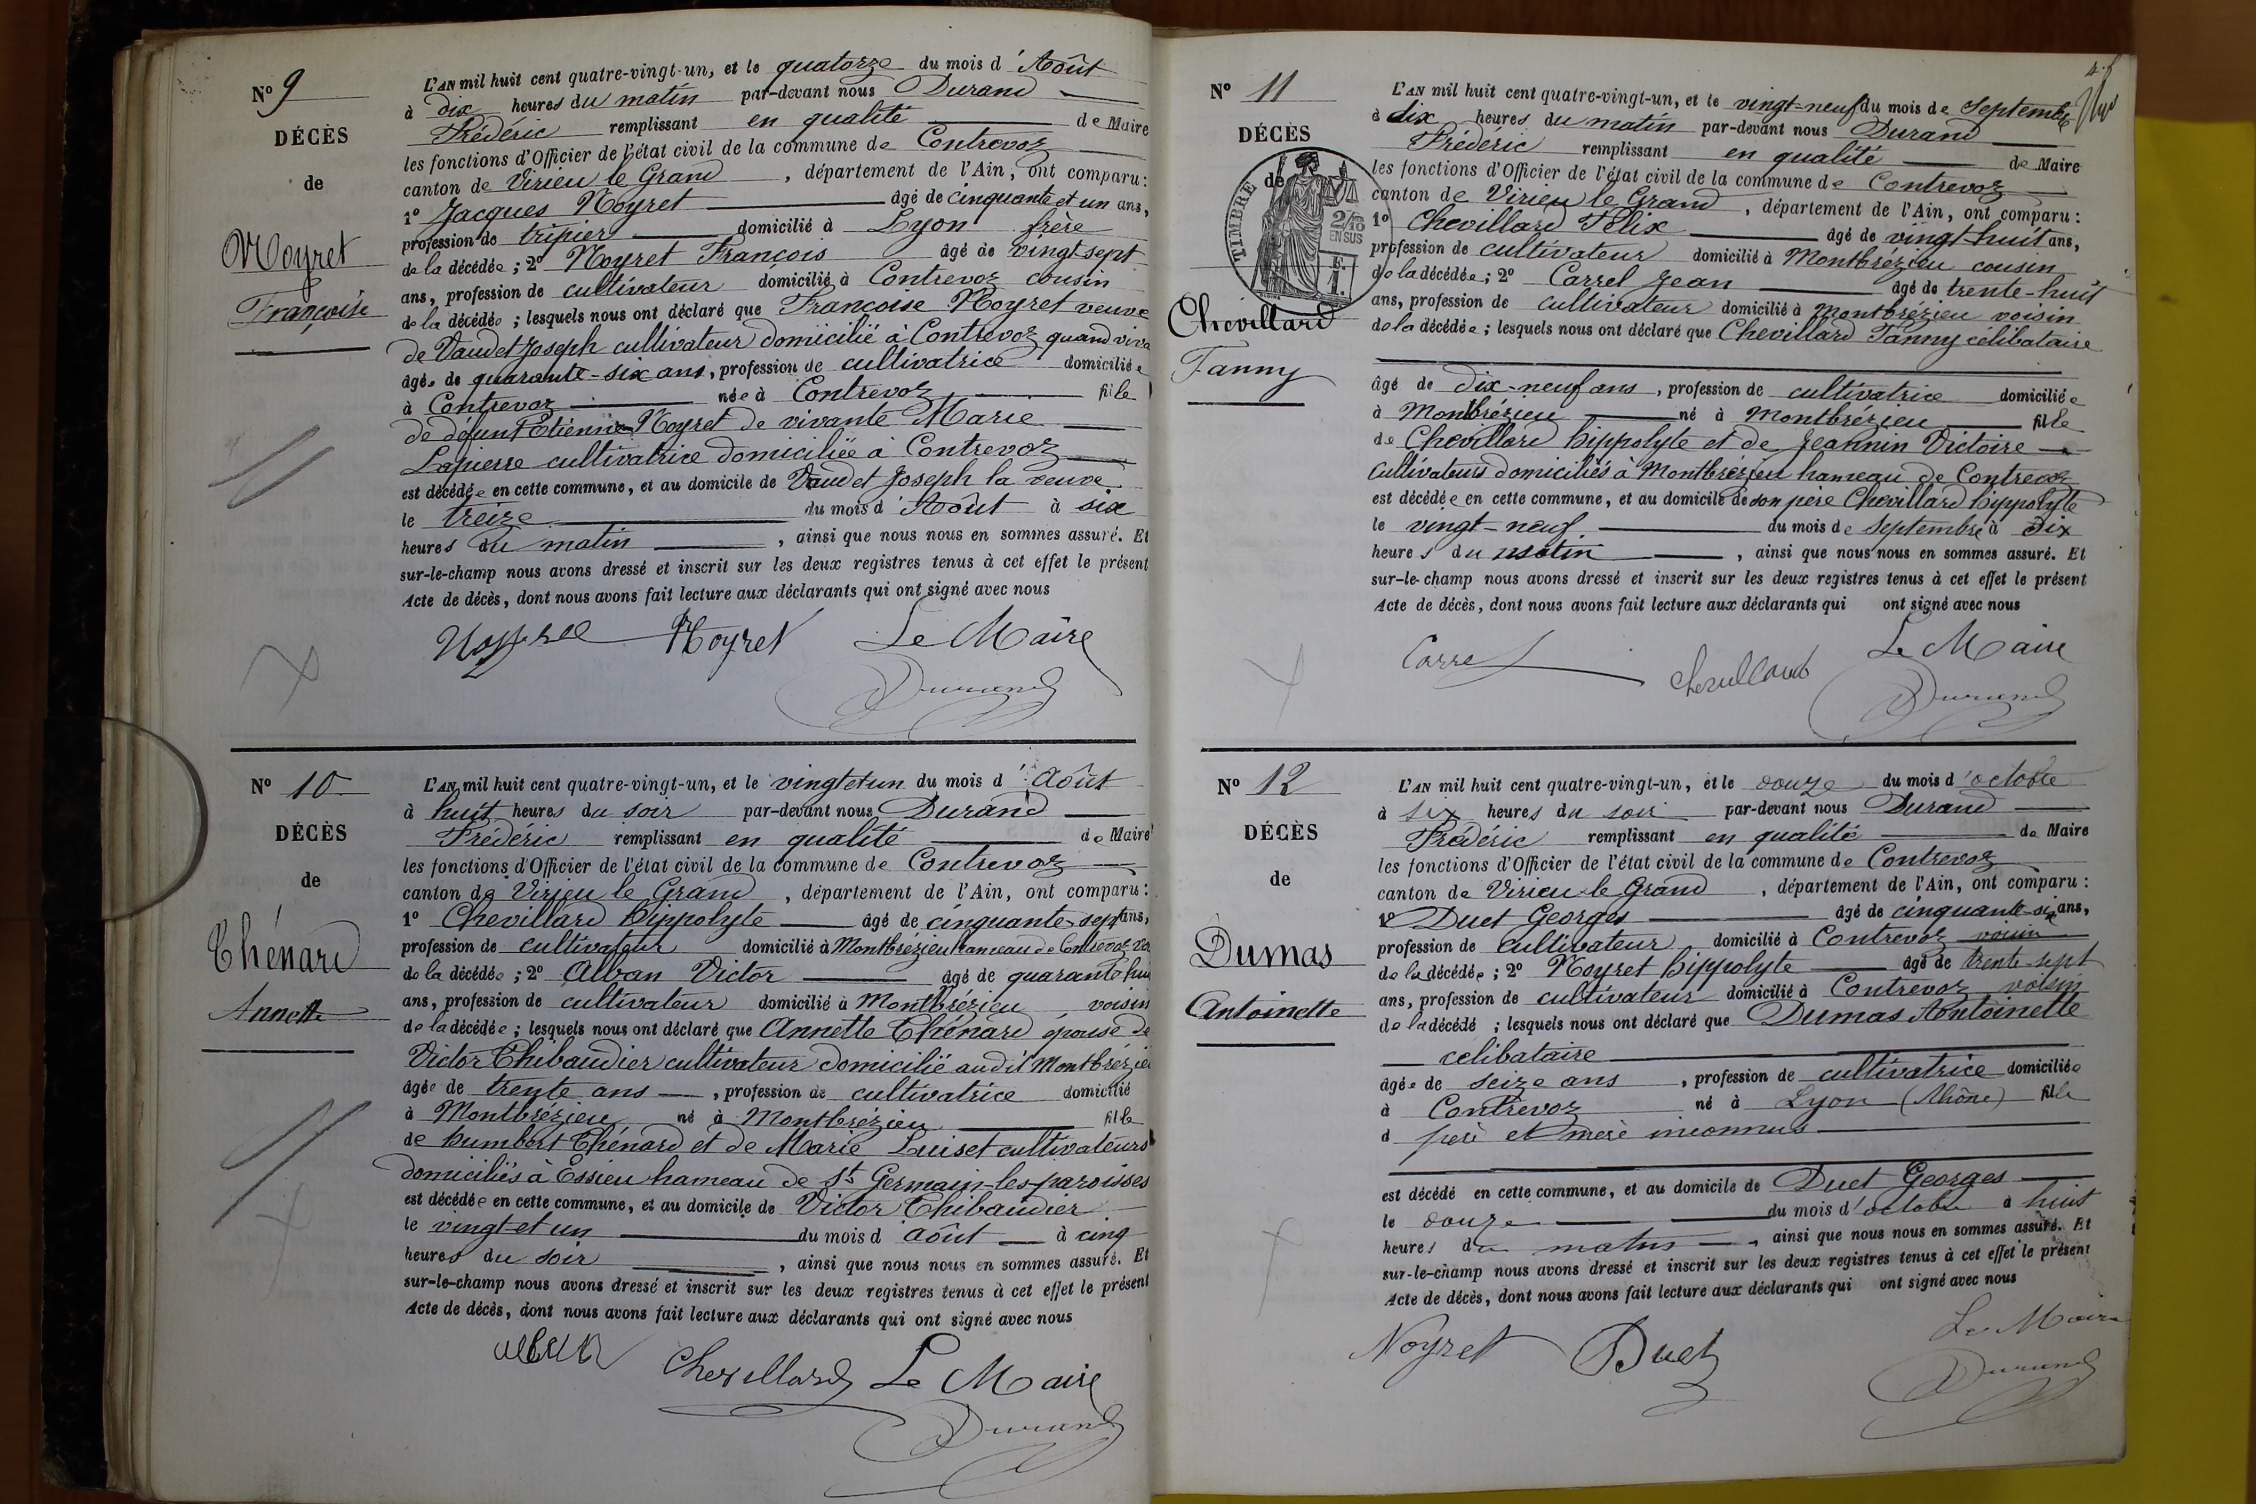 N° 9
DÉCÈS
de
Noyret
Françoise
L'AN mil huit cent quatre-vingt-un, et le quatorze du mois d'Août
à dix heures du matin par-devant nous Durand
Frédéric remplissant en qualité de Maire
les fonctions d'Officier de l'état civil de la commune de Contrevoz
canton de Virieu le Grand, département de l'Ain, ont comparu:
1° Jacques Noyret âgé de cinquante et un ans,
profession de tripier domicilié à Lyon frère
de la décédée; 2° Noyret François âgé de vingt sept
ans, profession de cultivateur domicilié à Contrevoz cousin
de la décédée; lesquels nous ont déclaré que Françoise Noyret veuve
de Vaudet Joseph cultivateur domicilié à Contrevoz quand viva
âgée de quarante-six ans, profession de cultivatrice domiciliée
à Contrevoz née à Contrevoz fille
de défunt Etienne Noyret de vivante Marie
Lapierre cultivatrice domiciliée à Contrevoz
est décédée en cette commune, et au domicile de Vaudet Joseph la veuve
le treize du mois d'Août à six
heures du matin, ainsi que nous nous en sommes assuré. Et
sur-le-champ nous avons dressé et inscrit sur les deux registres tenus à cet effet le présent
Acte de décès, dont nous avons fait lecture aux déclarants qui ont signé avec nous
Noyret Le Maire
Durand
N° 10
DÉCÈS
de
Thénard
Annette
L'AN mil huit cent quatre-vingt-un, et le vingt et un du mois d'Août
à huit heures du soir par-devant nous Durand
Frédéric remplissant en qualité de Maire
les fonctions d'Officier de l'état civil de la commune de Contrevoz
canton de Virieu le Grand, département de l'Ain, ont comparu:
1° Chevillard hippolyte âgé de cinquante-sept ans,
profession de cultivateur domicilié à Montbrézieu hameau de Contrevoz
de la décédée; 2° Alban Victor âgé de quarante hui
ans, profession de cultivateur domicilié à Montbrézieu voisin
de la décédée; lesquels nous ont déclaré que Annette Thénard épouse de
Victor Thibaudier cultivateur domicilié audit Montbrézieu
âgée de trente ans, profession de cultivatrice domicilié
à Montbrézieu né à Montbrézieu fille
de humbert Thénard et de Marie Luiset cultivateurs
domiciliés à Essieu hameau de St Germain-les-paroisses
est décédée en cette commune, et au domicile de Victor Thibaudier
le vingt et un du mois d'août à cinq
heures du soir, ainsi que nous nous en sommes assuré. Et
sur-le-champ nous avons dressé et inscrit sur les deux registres tenus à cet effet le présent
Acte de décès, dont nous avons fait lecture aux déclarants qui ont signé avec nous
Chevillard Le Maire
Durand
N° 11
DÉCÈS
de
TIMBRE
2/10
EN SUS
F.
1.
Chevillard
Fanny
L'AN mil huit cent quatre-vingt-un, et le vingt-neuf du mois de Septembre
à dix heures du matin par-devant nous Durand
Frédéric remplissant en qualité de Maire
les fonctions d'Officier de l'état civil de la commune de Contrevoz
canton de Virieu le Grand, département de l'Ain, ont comparu:
1° Chevillard Félix âgé de vingt-huit ans,
profession de cultivateur domicilié à Montbrézieu cousin
de la décédée; 2° Carrel Jean âgé de trente-huit
ans, profession de cultivateur domicilié à Montbrézieu voisin
de la décédée; lesquels nous ont déclaré que Chevillard Fanny célibataire
âgé de dix-neuf ans, profession de cultivatrice domiciliée
à Montbrézieu né à Montbrézieu fille
de Chevillard hippolyte et de Jeannin Victoire
cultivateurs domiciliés à Montbrézieu hameau de Contrevoz
est décédée en cette commune, et au domicile de son père Chevillard hippolyte
le vingt-neuf du mois de septembre à dix
heures du matin, ainsi que nous nous en sommes assuré. Et
sur-le-champ nous avons dressé et inscrit sur les deux registres tenus à cet effet le présent
Acte de décès, dont nous avons fait lecture aux déclarants qui ont signé avec nous
Carrel Chevillard Le Maire
Durand
N° 12
DÉCÈS
de
Dumas
Antoinette
L'AN mil huit cent quatre-vingt-un, et le douze du mois d'octobre
à six heures du soir par-devant nous Durand
Frédéric remplissant en qualité de Maire
les fonctions d'Officier de l'état civil de la commune de Contrevoz
canton de Virieu le Grand, département de l'Ain, ont comparu:
1° Duet Georges âgé de cinquante-six ans,
profession de cultivateur domicilié à Contrevoz voisin
de la décédée; 2° Noyret hippolyte âgé de trente-sept
ans, profession de cultivateur domicilié à Contrevoz voisin
de la décédé; lesquels nous ont déclaré que Dumas Antoinette
celibataire
âgée de seize ans, profession de cultivatrice domiciliée
à Contrevoz né à Lyon (Rhône) fille
d père et mère inconnus
est décédé en cette commune, et au domicile de Duet Georges
le douze du mois d'octobre à huit
heures du matin, ainsi que nous nous en sommes assuré. Et
sur-le-champ nous avons dressé et inscrit sur les deux registres tenus à cet effet le présent
Acte de décès, dont nous avons fait lecture aux déclarants qui ont signé avec nous
Noyret Duet Le Maire
Durand